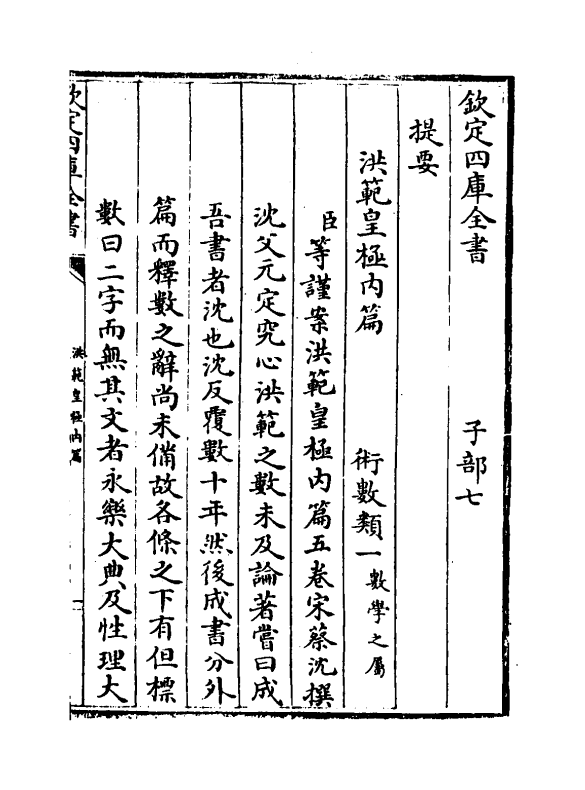 欽定四庫全書　子部七
提要
洪範皇極內篇　術數類一數學之屬
臣等謹案洪範皇極內篇五卷宋蔡沈撰
沈父元定究心洪範之數未及論著嘗曰成
吾書者沈也沈反覆數十年然後成書分外
篇而釋數之辭尚未備故各條之下有但標
數曰二字而無其文者永樂大典及性理大
欽定四庫全書
洪範皇極內篇
一